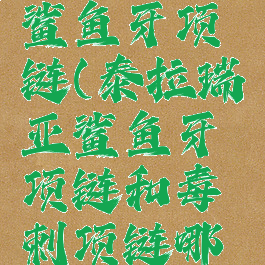 鲨鱼牙项
链(泰拉瑞
亚鲨鱼牙
项链和毒
刺项链哪